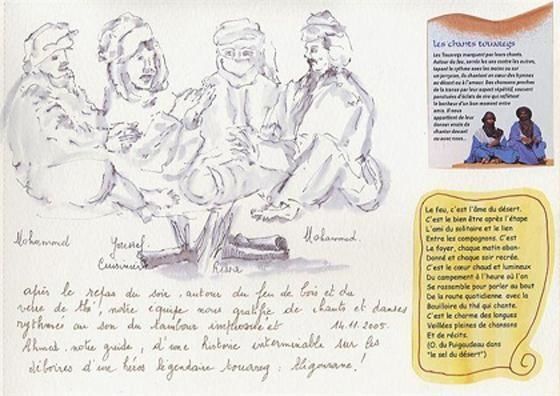 Les chants touaregs
Les Touaregs marquent par leurs chants.
Autour du feu, serrés les uns contre les autres,
tapant le rythme avec les mains ou sur
un jerrycan, ils chantent en cœur des hymnes
au désert ou à l'amour. Des chansons proches
de la transe par leur aspect répétitif, souvent
ponctuées d'éclats de rire qui reflètent
le bonheur d'un bon moment entre
amis. Il nous
appartient de leur
donner envie de
chanter devant
ou avec nous...
Le feu, c'est l'âme du désert.
C'est le bien être après l'étape
L'ami du solitaire et le lien
Entre les compagnons. C'est
Le foyer, chaque matin aban-
Donné et chaque soir recrée.
C'est le cœur chaud et lumineux
Du campement à l'heure où l'on
Se rassemble pour parler au bout
De la route quotidienne avec la
Bouilloire du thé qui chante.
C'est le charme des longues
Veillées pleines de chansons
Et de récits.
(O. du Puigaudeau dans
"le sel du désert")
Mohammed
Youssef
Cuisinier
Rissa
Mohammed
après le repas du soir, autour du feu de bois et du
verre de thé, notre équipe nous gratifie de chants et danses
rythmés au son du tambour improvisé et
14.11.2005.
Ahmed, notre guide, d'une histoire interminable sur les
déboires d'un héros légendaire touareg : Aligourrane !